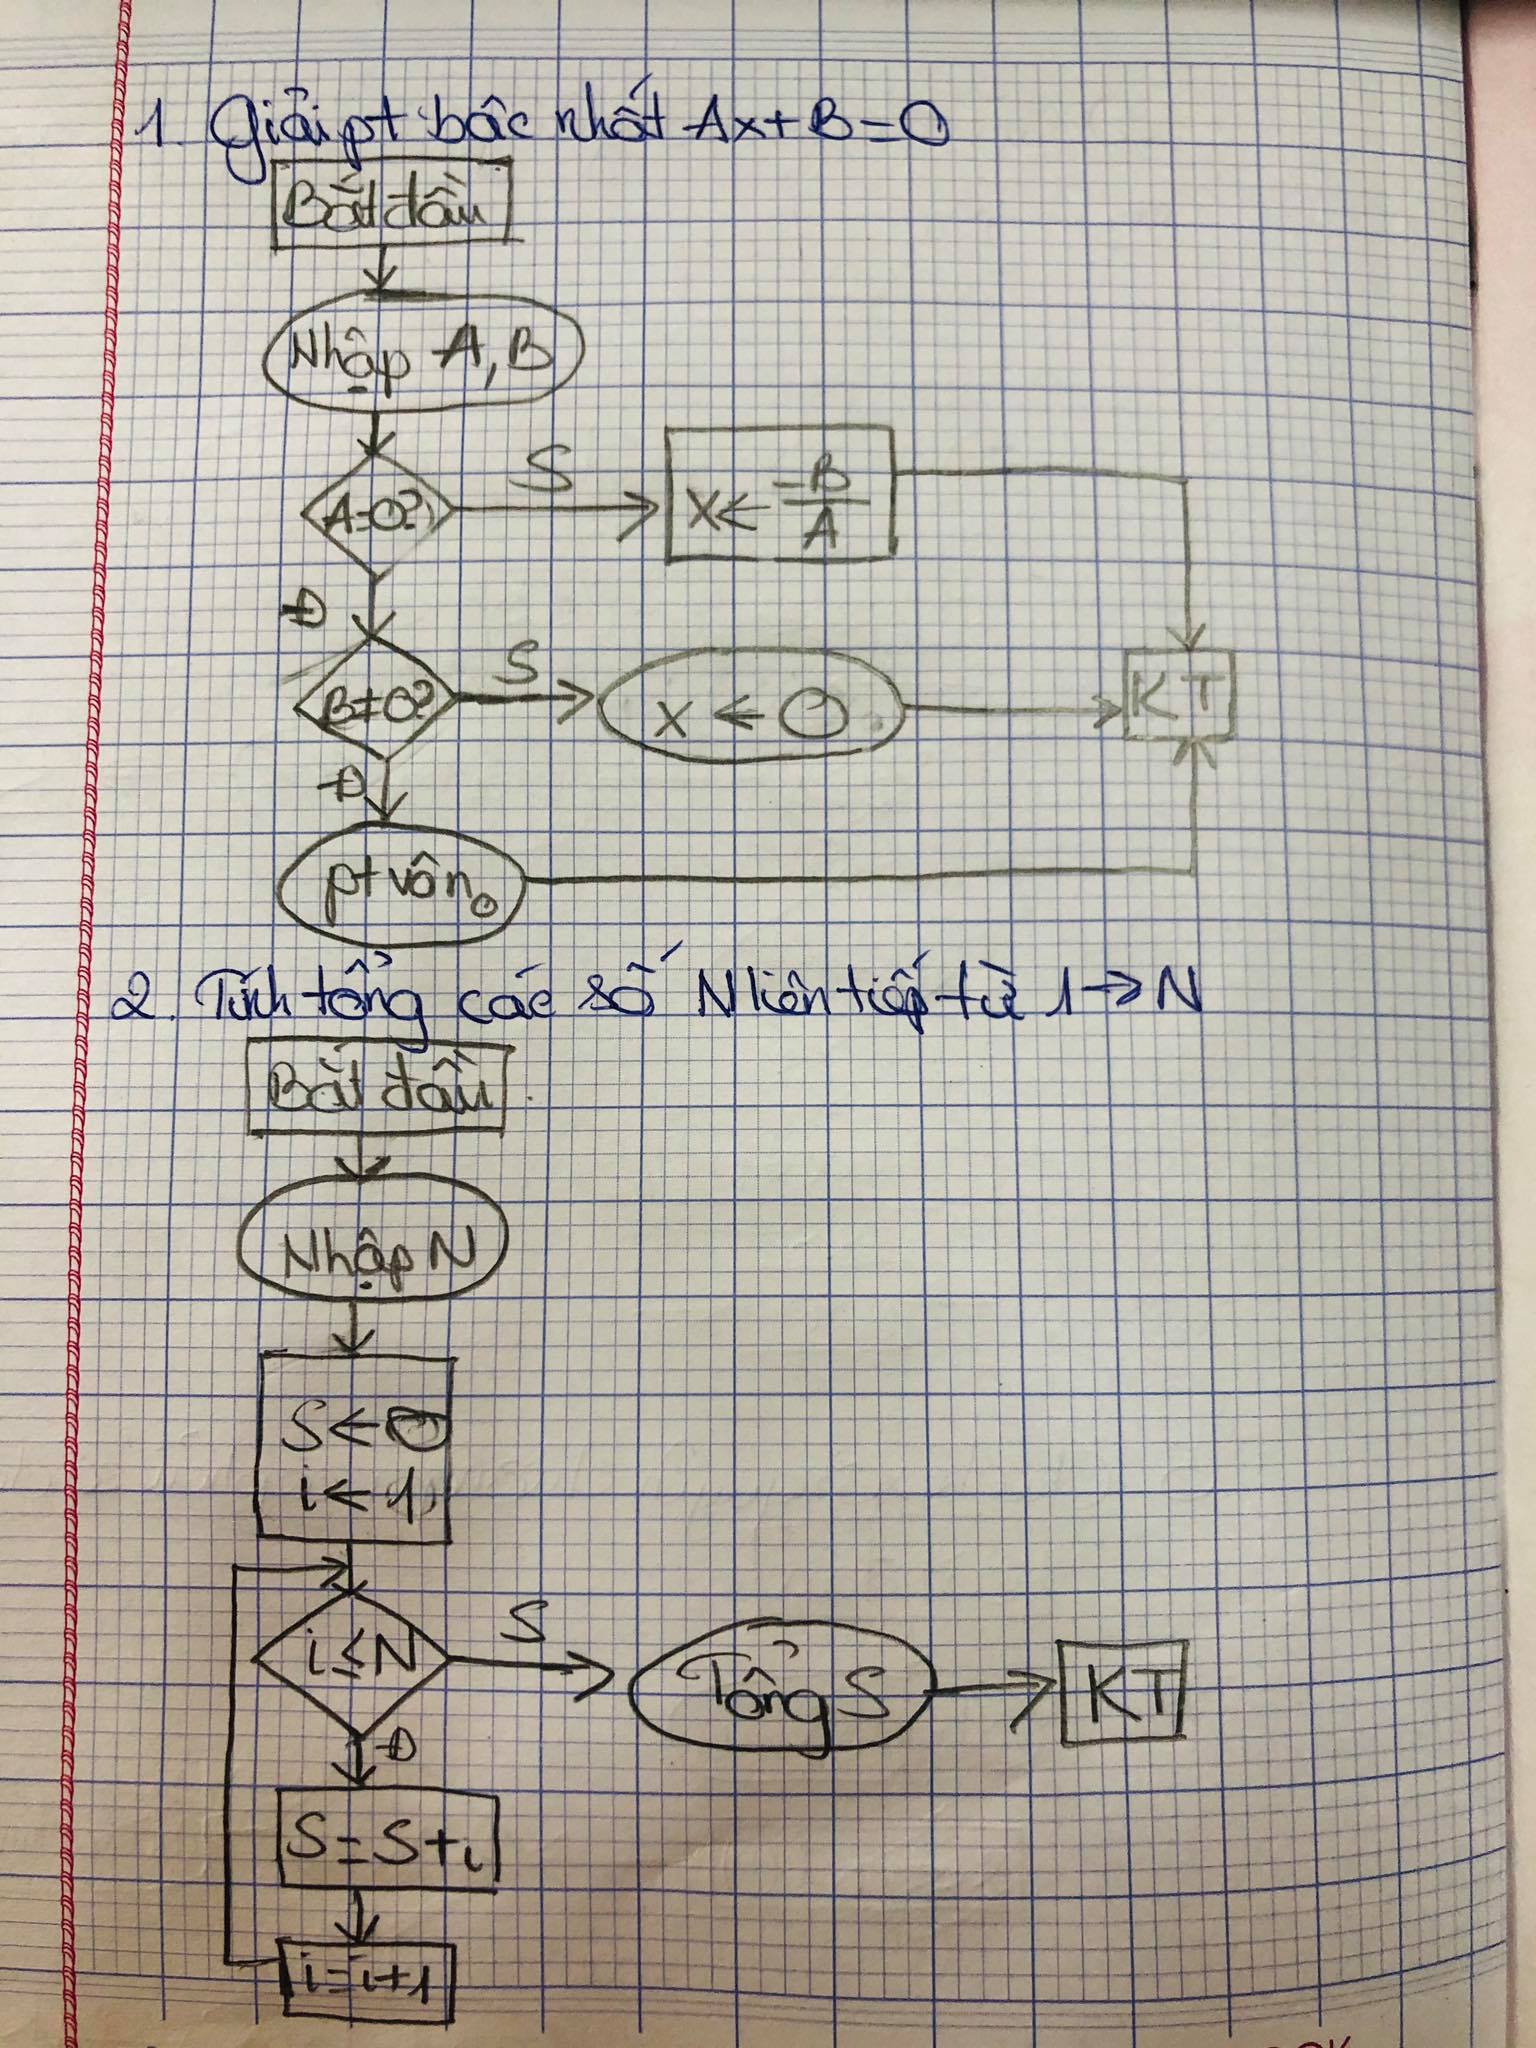 1. Giải pt bậc nhất Ax+B=0
Bắt đầu
Nhập A, B
A=0?
S
X← -B/A
Đ
B≠0?
S
X ← 0
KT
Đ
pt vô n₀
2. Tính tổng các số N liên tiếp từ 1→N
Bắt đầu
Nhập N
S←0
i←1
i≤N
S
Tổng S
KT
Đ
S=S+i
i=i+1